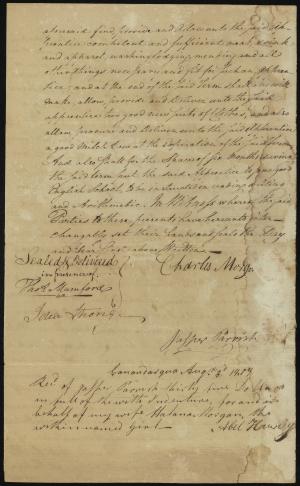 aforesaid find, provide and allow unto the said Ap-
prentice competent and sufficient meat, drink
and apparel, washing lodging, mending and all
other things necessary and fit for such an appren-
tice; and at the end of the said Term shall & will
make, allow, provide and deliver unto the said
apprentice two good new suits of clothes, and also
allow, procure and deliver unto the said apprentice
a good Milch Cow at the expiration of the said Term.
And also shall for the space of six Months during
the said term put the said Apprentice to some good
English School, to be instructed in reading writing
and Arithmetic. In Witness whereof the said
Parties to these presents have hereunto inter-
changably set their hands and seals the Day
and Year first above Written
Sealed & Delivered
in presence of
Charles Morgan
Thos. Mumford
Jasper Parrish
Canandaigua Augt
Recd of Jasper Parrish thirty two Dollars
in full of the with Indenture, for and in
behalf of my wife Morgan, the
within named Girl.
Abel